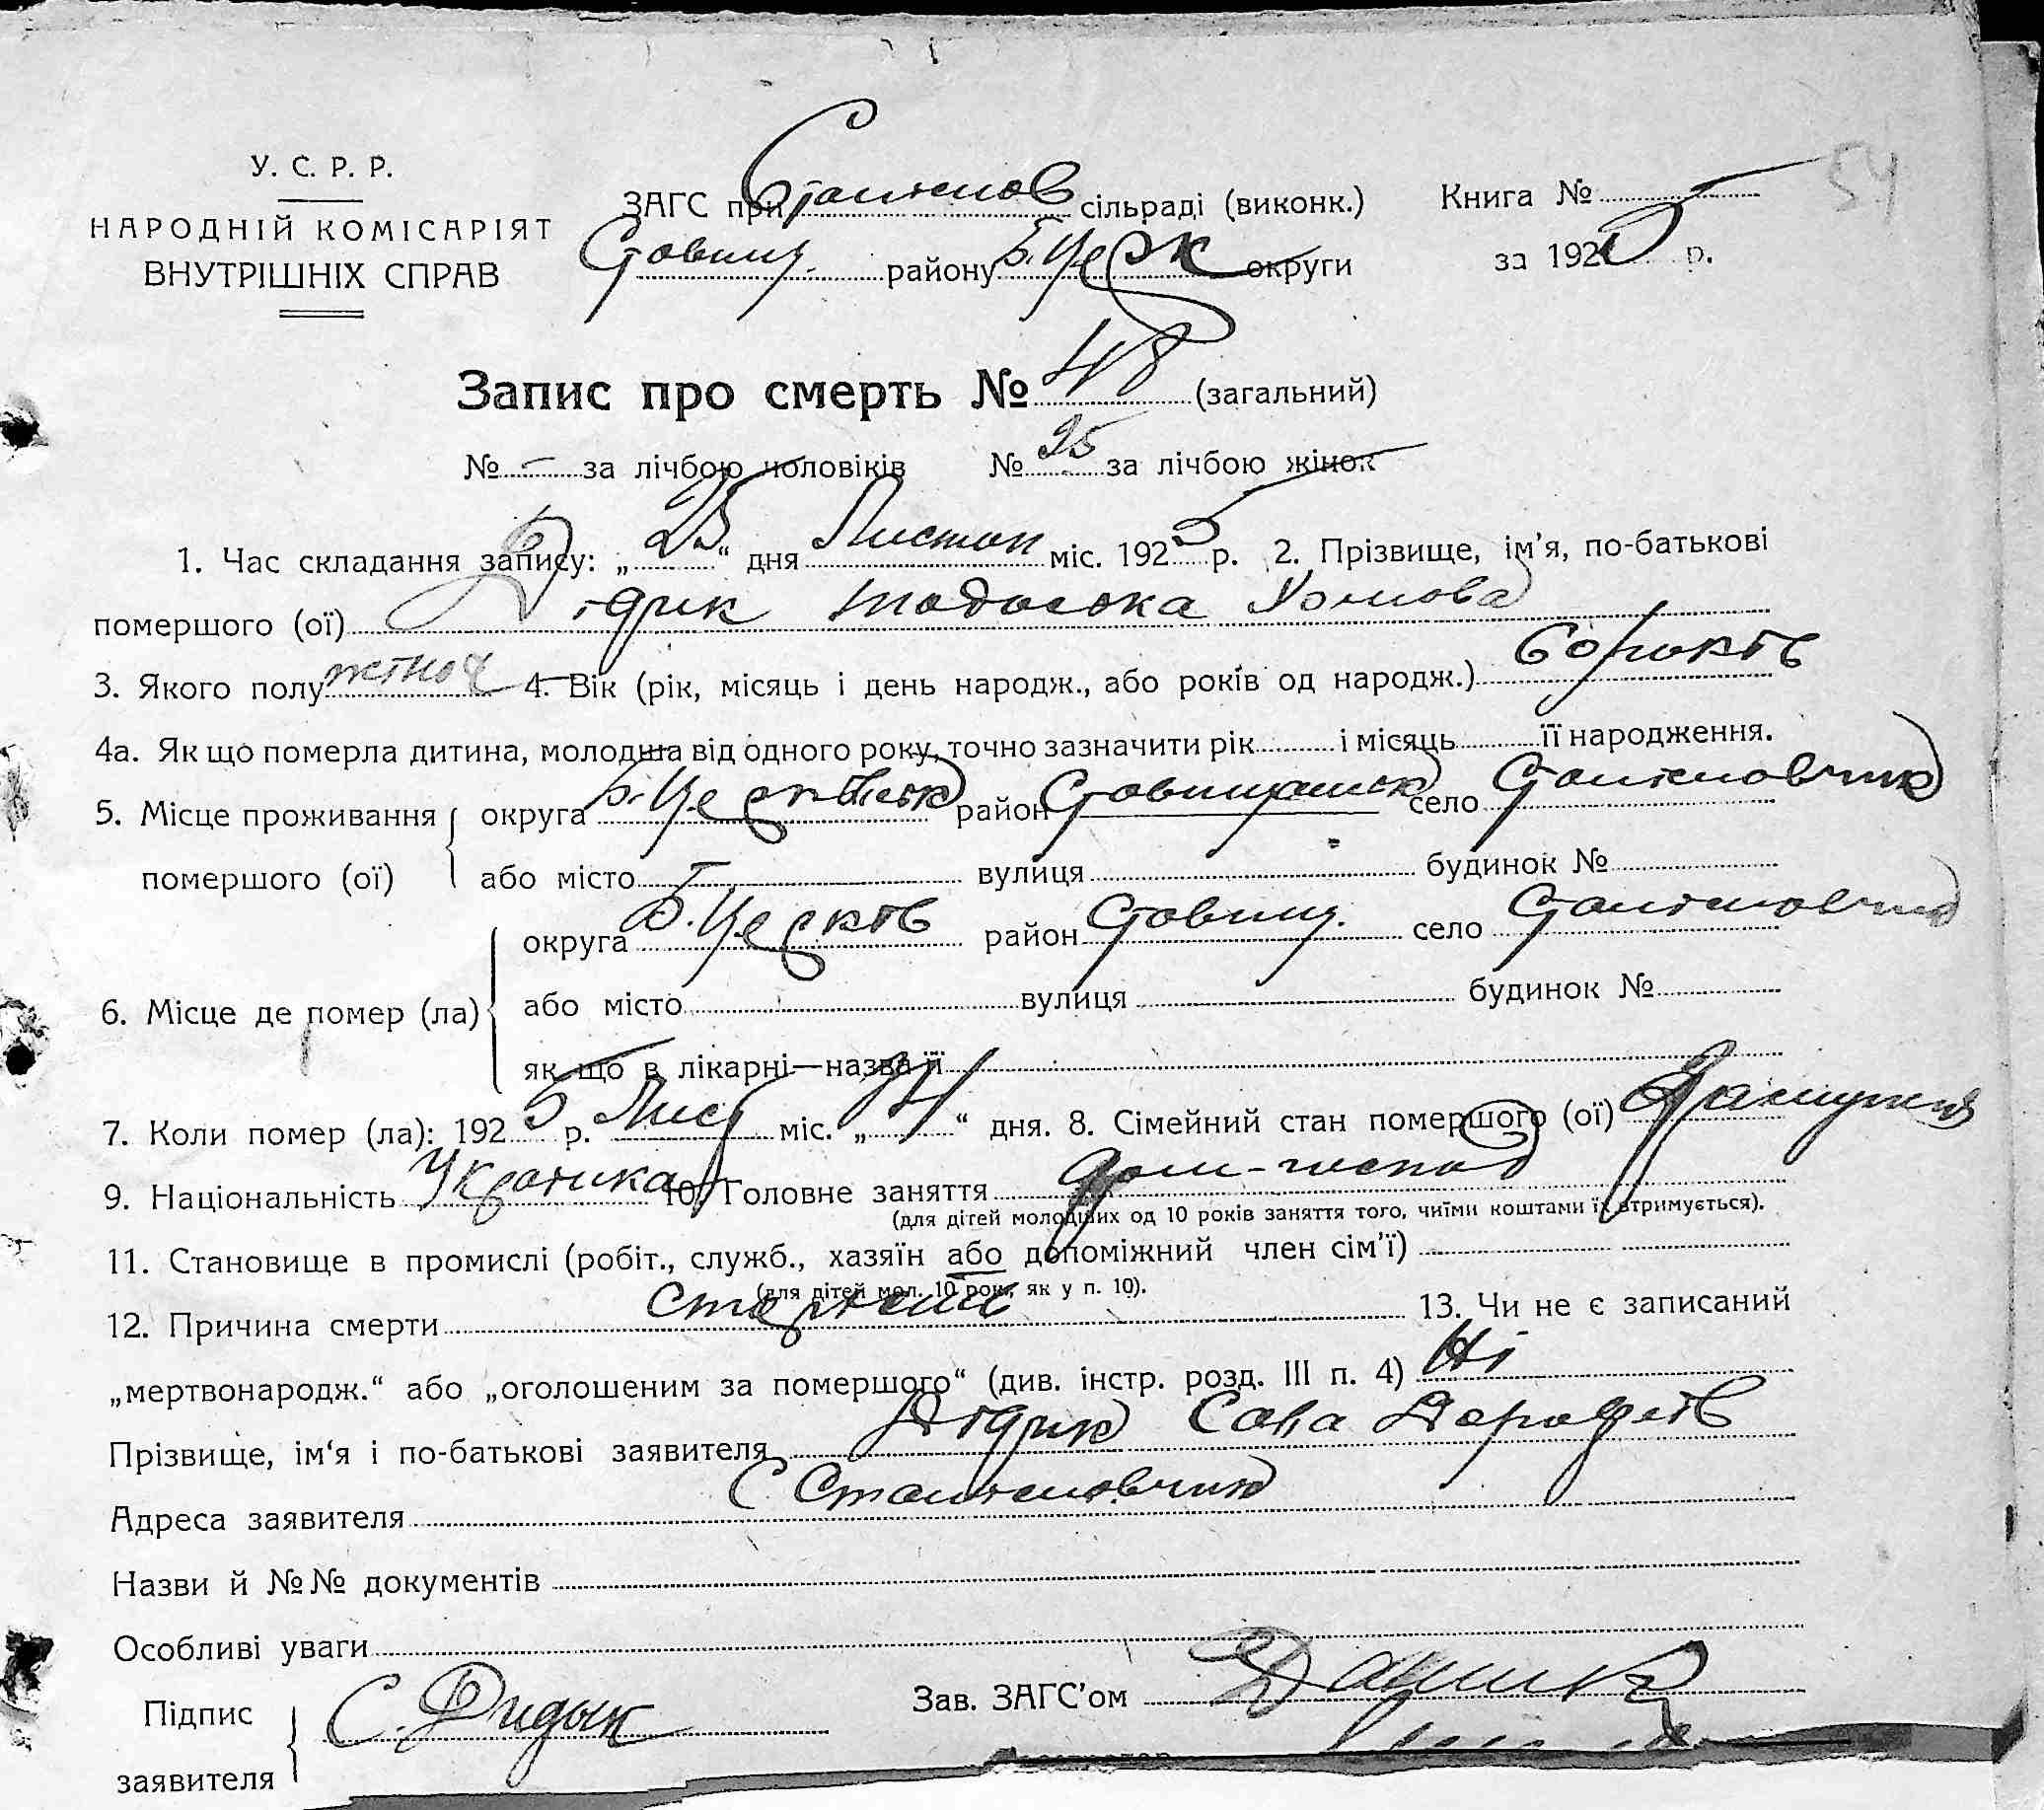 54
У. С. Р. Р.
НАРОДНІЙ КОМІСАРІЯТ
ВНУТРІШНІХ СПРАВ
ЗАГС при сільраді (виконк.) Книга №
Ставищ. району Б. Церк округи за 1925 р.
Запис про смерть № 48 (загальний)
№ – за лічбою чоловіків № 25 за лічбою жінок
1. Час складання запису: „25“ дня Листоп міс. 1925 р. 2. Прізвище, ім'я, по-батькові
помершого (ої) Дідик Тодоська
3. Якого полу жіноч 4. Вік (рік, місяць і день народж., або років од народж.) 60 років
4а. Як що померла дитина, молодша від одного року, точно зазначити рік і місяць її народження.
5. Місце проживання округа Б. Церківськ район Ставищанськ село
помершого (ої) або місто вулиця будинок №
округа Б. Церків район Ставищ. село
6. Місце де помер (ла) або місто вулиця будинок №
як що в лікарні—назва її
7. Коли помер (ла): 1925 р. Лист міс. „ “ дня. 8. Сімейний стан помершого (ої) Замужня
9. Національність Українка 10. Головне заняття дом-господ
(для дітей молодших од 10 років заняття того, чиїми коштами їх втримується).
11. Становище в промислі (робіт., служб., хазяїн або допоміжний член сім'ї)
(для дітей мол. 10 рок., як у п. 10).
12. Причина смерти 13. Чи не є записаний
„мертвонародж.“ або „оголошеним за помершого“ (див. інстр. розд. III п. 4) Ні
Прізвище, ім'я і по-батькові заявителя Дідик Сава
Адреса заявителя С
Назви й №№ документів
Особливі уваги
Підпис заявителя С. Дидык Зав. ЗАГС'ом